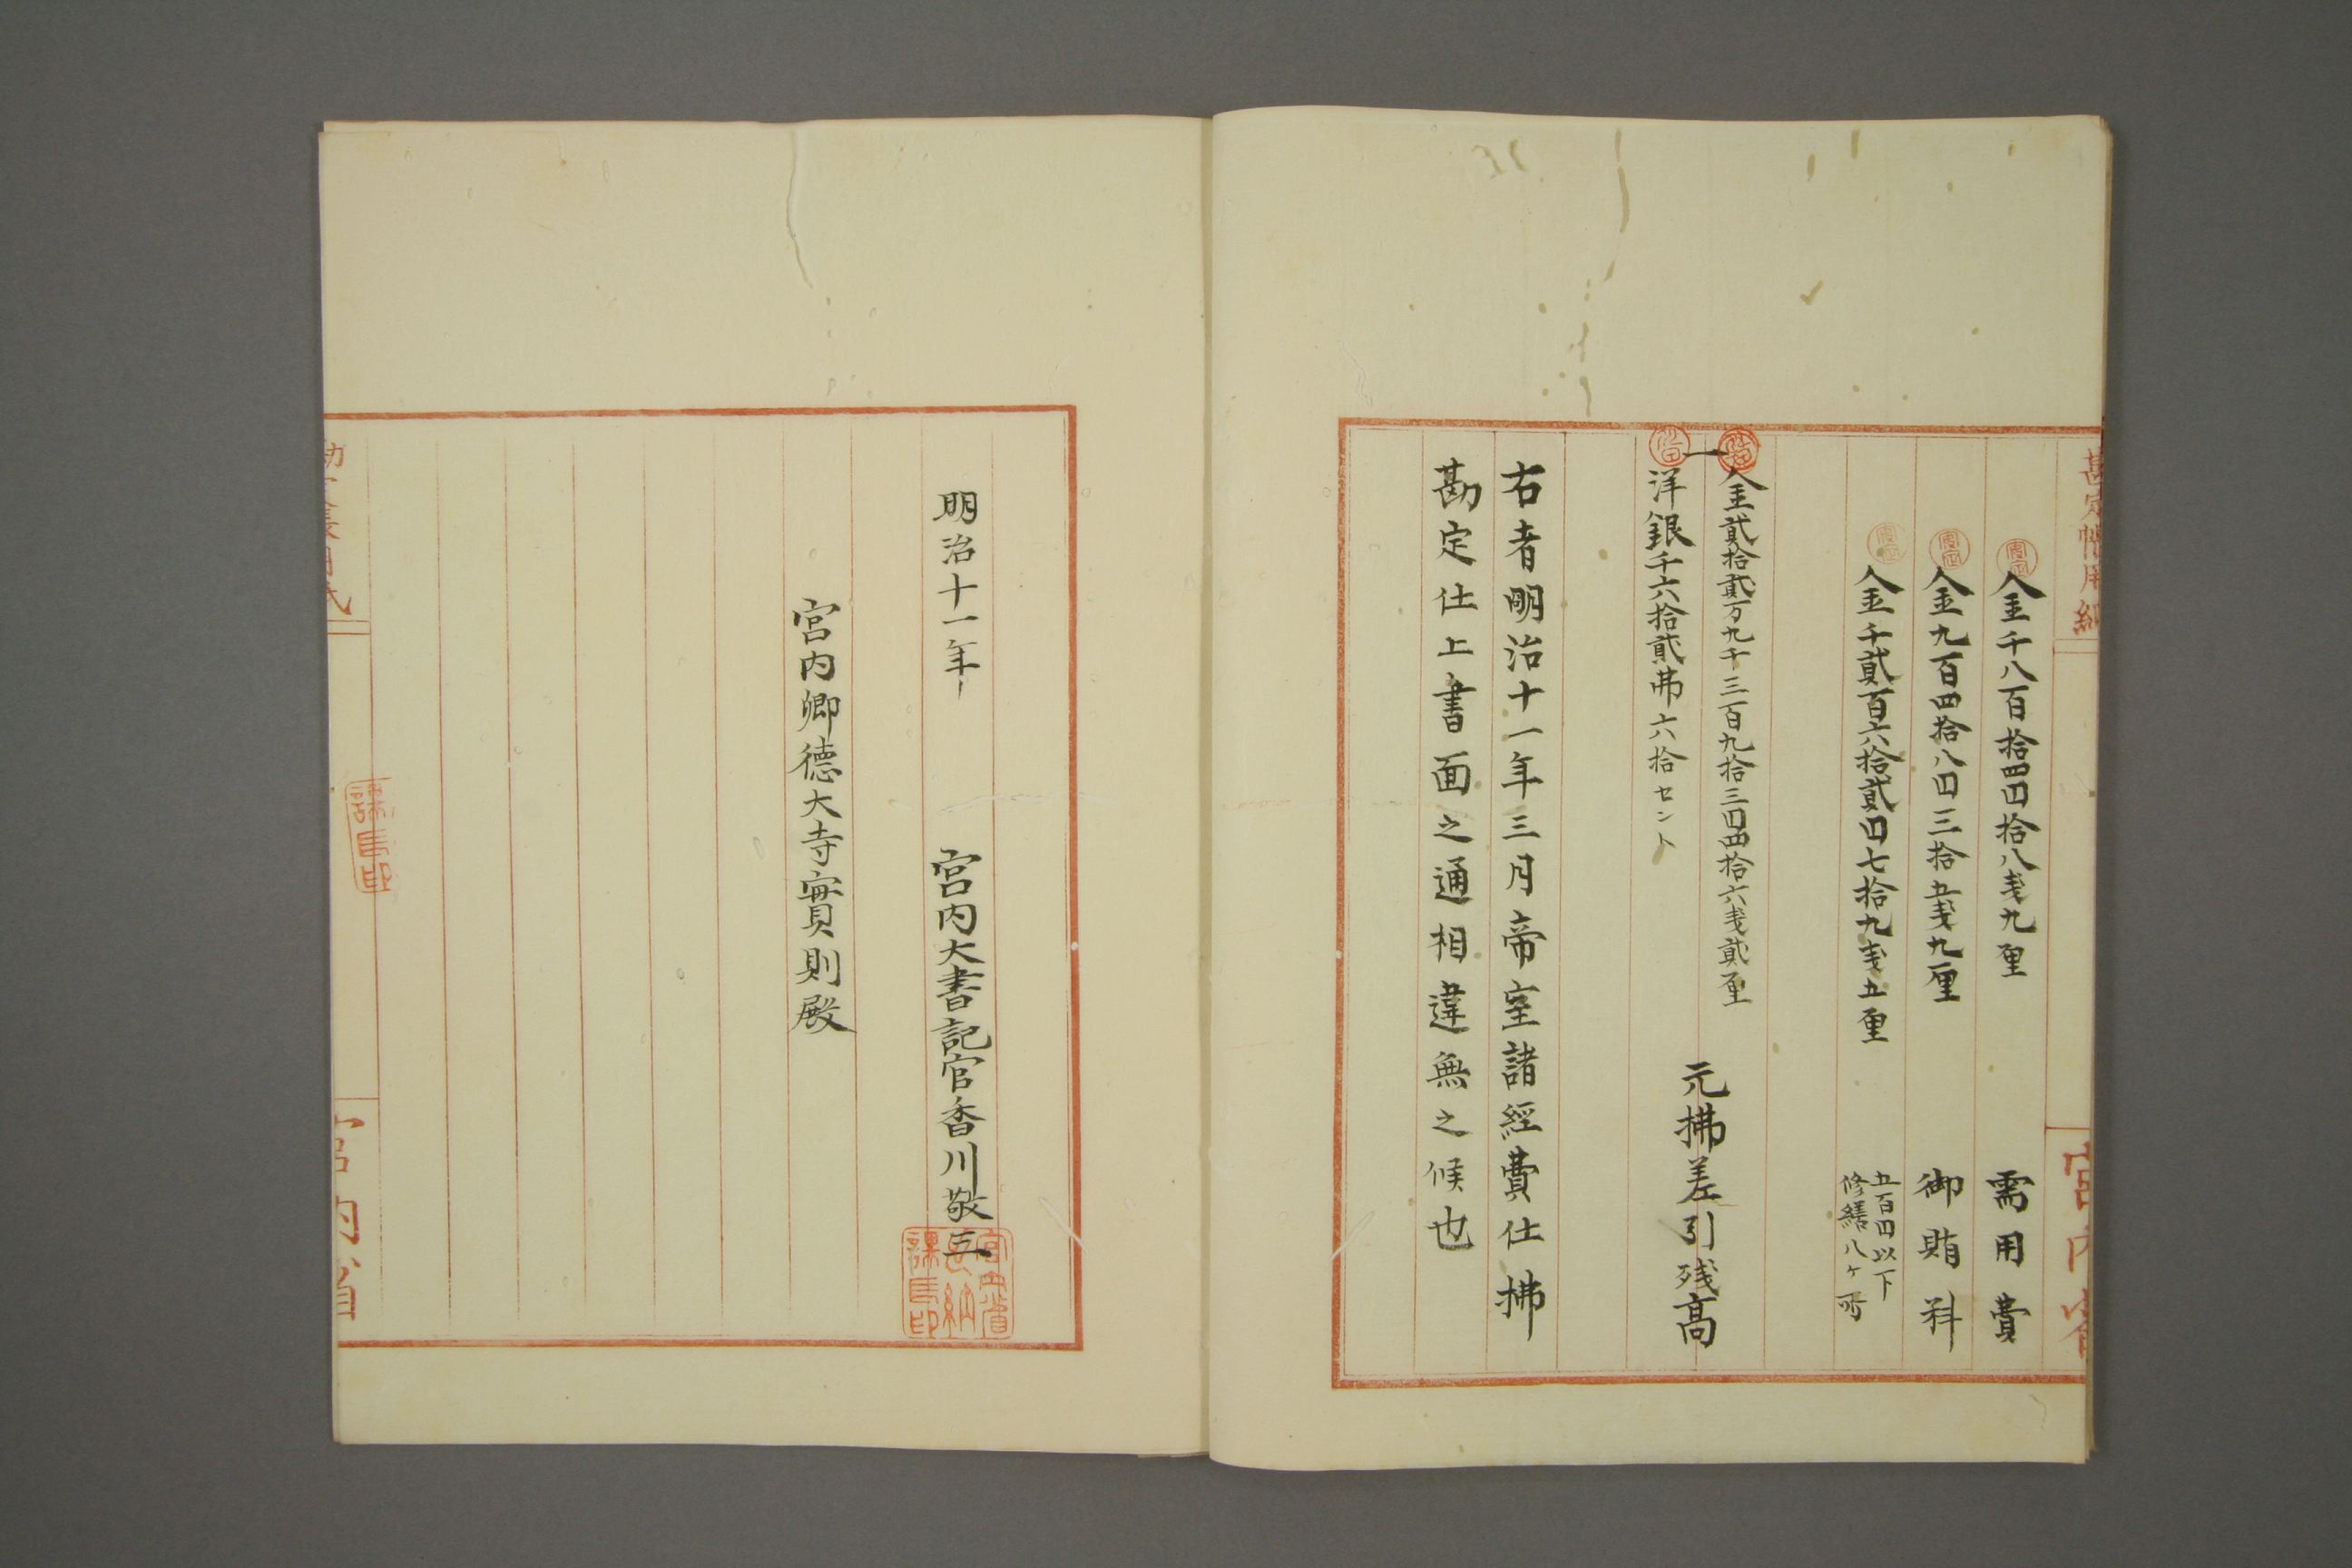 勘定帳用紙
宮内省
金千八百拾四円拾八銭九厘 需用費
金九百四拾八円三拾五銭九厘 御賄料
金千貳百六拾貳円七拾九銭五厘 五百円以下
修繕八ヶ所
一金貳拾貳万九千三百九拾三円四拾六銭貳厘
洋銀千六拾貳弗六拾セント
元拂差引残高
右者明治十一年三月帝室諸經費仕拂
勘定仕上書面之通相違無之候也
明治十一年 宮内大書記官香川敬三
宮内卿德大寺實則殿
宮内省